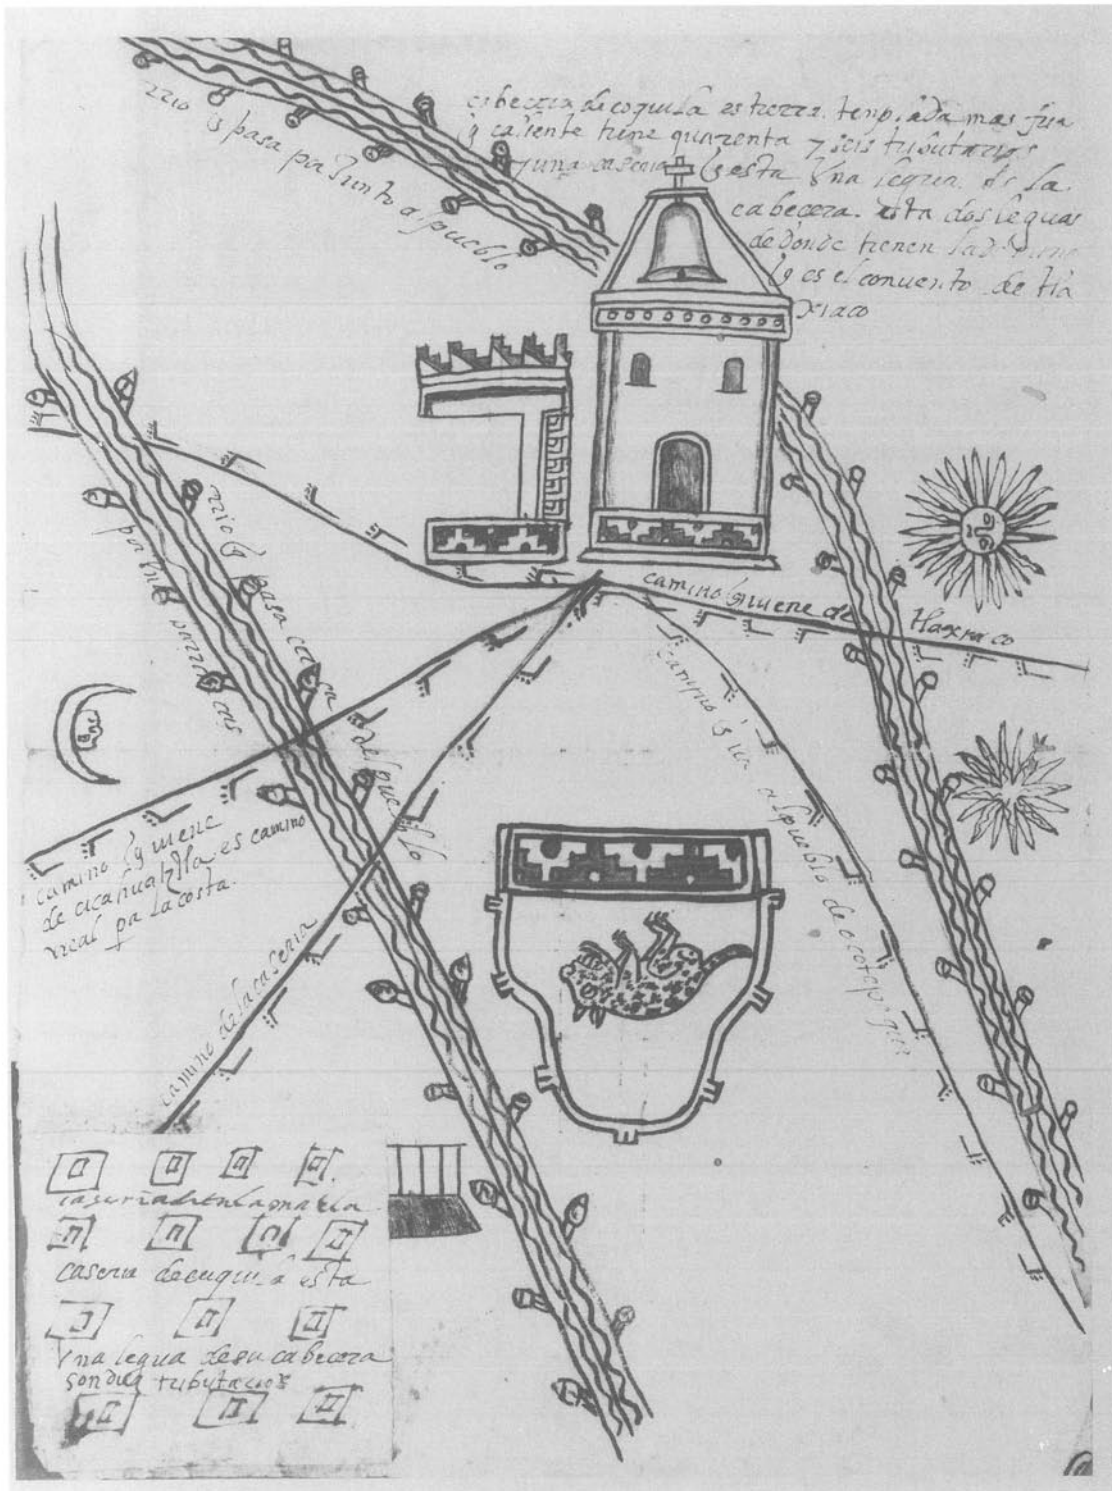 rrio q̃ pasa por Junto al pueblo
cabecera de coquila es tierra tenplada mas fria
q̃ caliente tiene quarenta y seis tributarios
y una caseria q̃ esta Vna legua de la
cabecera. esta dos leguas
de donde tienen la
q̃ es el conuento de tla
xiaco
rrio q̃ pasa cerca del pueblo
por unas barrancas
camino q̃ uiene de tlaxiaco
camino q̃ ua al pueblo de ocotepeque
camino q̃ uiene
de cicahuaztla es camino
rreal pa la costa.
camino de la caseria
caseria
caseria de cuquila esta
Vna legua de su cabecera
son diez tributarios